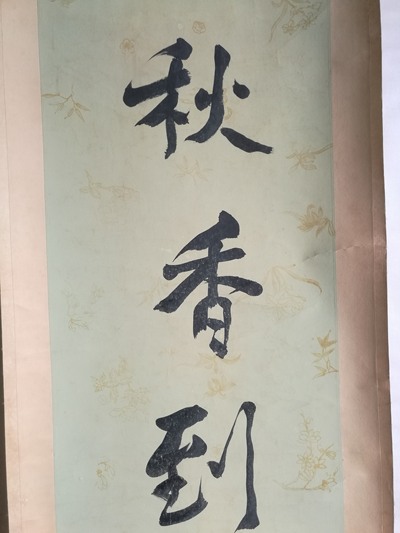 秋香到